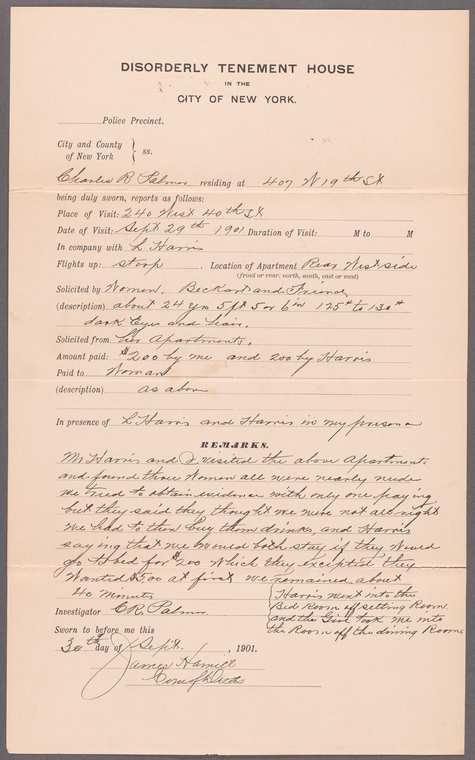 DISORDERLY TENEMENT HOUSE
IN THE
CITY OF NEW YORK.
Police Precinct.
City and County
of New York } ss.
Charles R Palmer residing at 407 W 19th St
being duly sworn, reports as follows:
Place of Visit: 240 West 40th St
Date of Visit: Sept 29th 1901 Duration of Visit: M to M
In company with L Harris
Flights up: stoop . Location of Apartment Rear West side
(front or rear: north, south, east or west)
Solicited by Women, Beckart and Friend
(description) about 24 yrs 5 ft 5 or 6 in 125# to 130#
dark Eyes and hair.
Solicited from her Apartments.
Amount paid: $2.00 by me and 200 by Harris
Paid to Woman
(description) as above
In presence of L Harris and Harris in my presence
REMARKS.
Mr Harris and I visited the above Apartments
and found three Women all were nearly nude
we tried to obtain evidence with only one paying
but they said they thought we were not all right
We had to then buy them drinks, and Harris
saying that we would both stay if they would
go to bed for $2.00 which they excepted they
Wanted $5.00 at first, we remained about
40 minuts
Harris went into the
Bed Room off setting Room
and the Girl took me into
the Room off the dining Room
Investigator C R. Palmer
Sworn to before me this
30th day of Sept. , 1901.
James Hamill
Com of Deeds